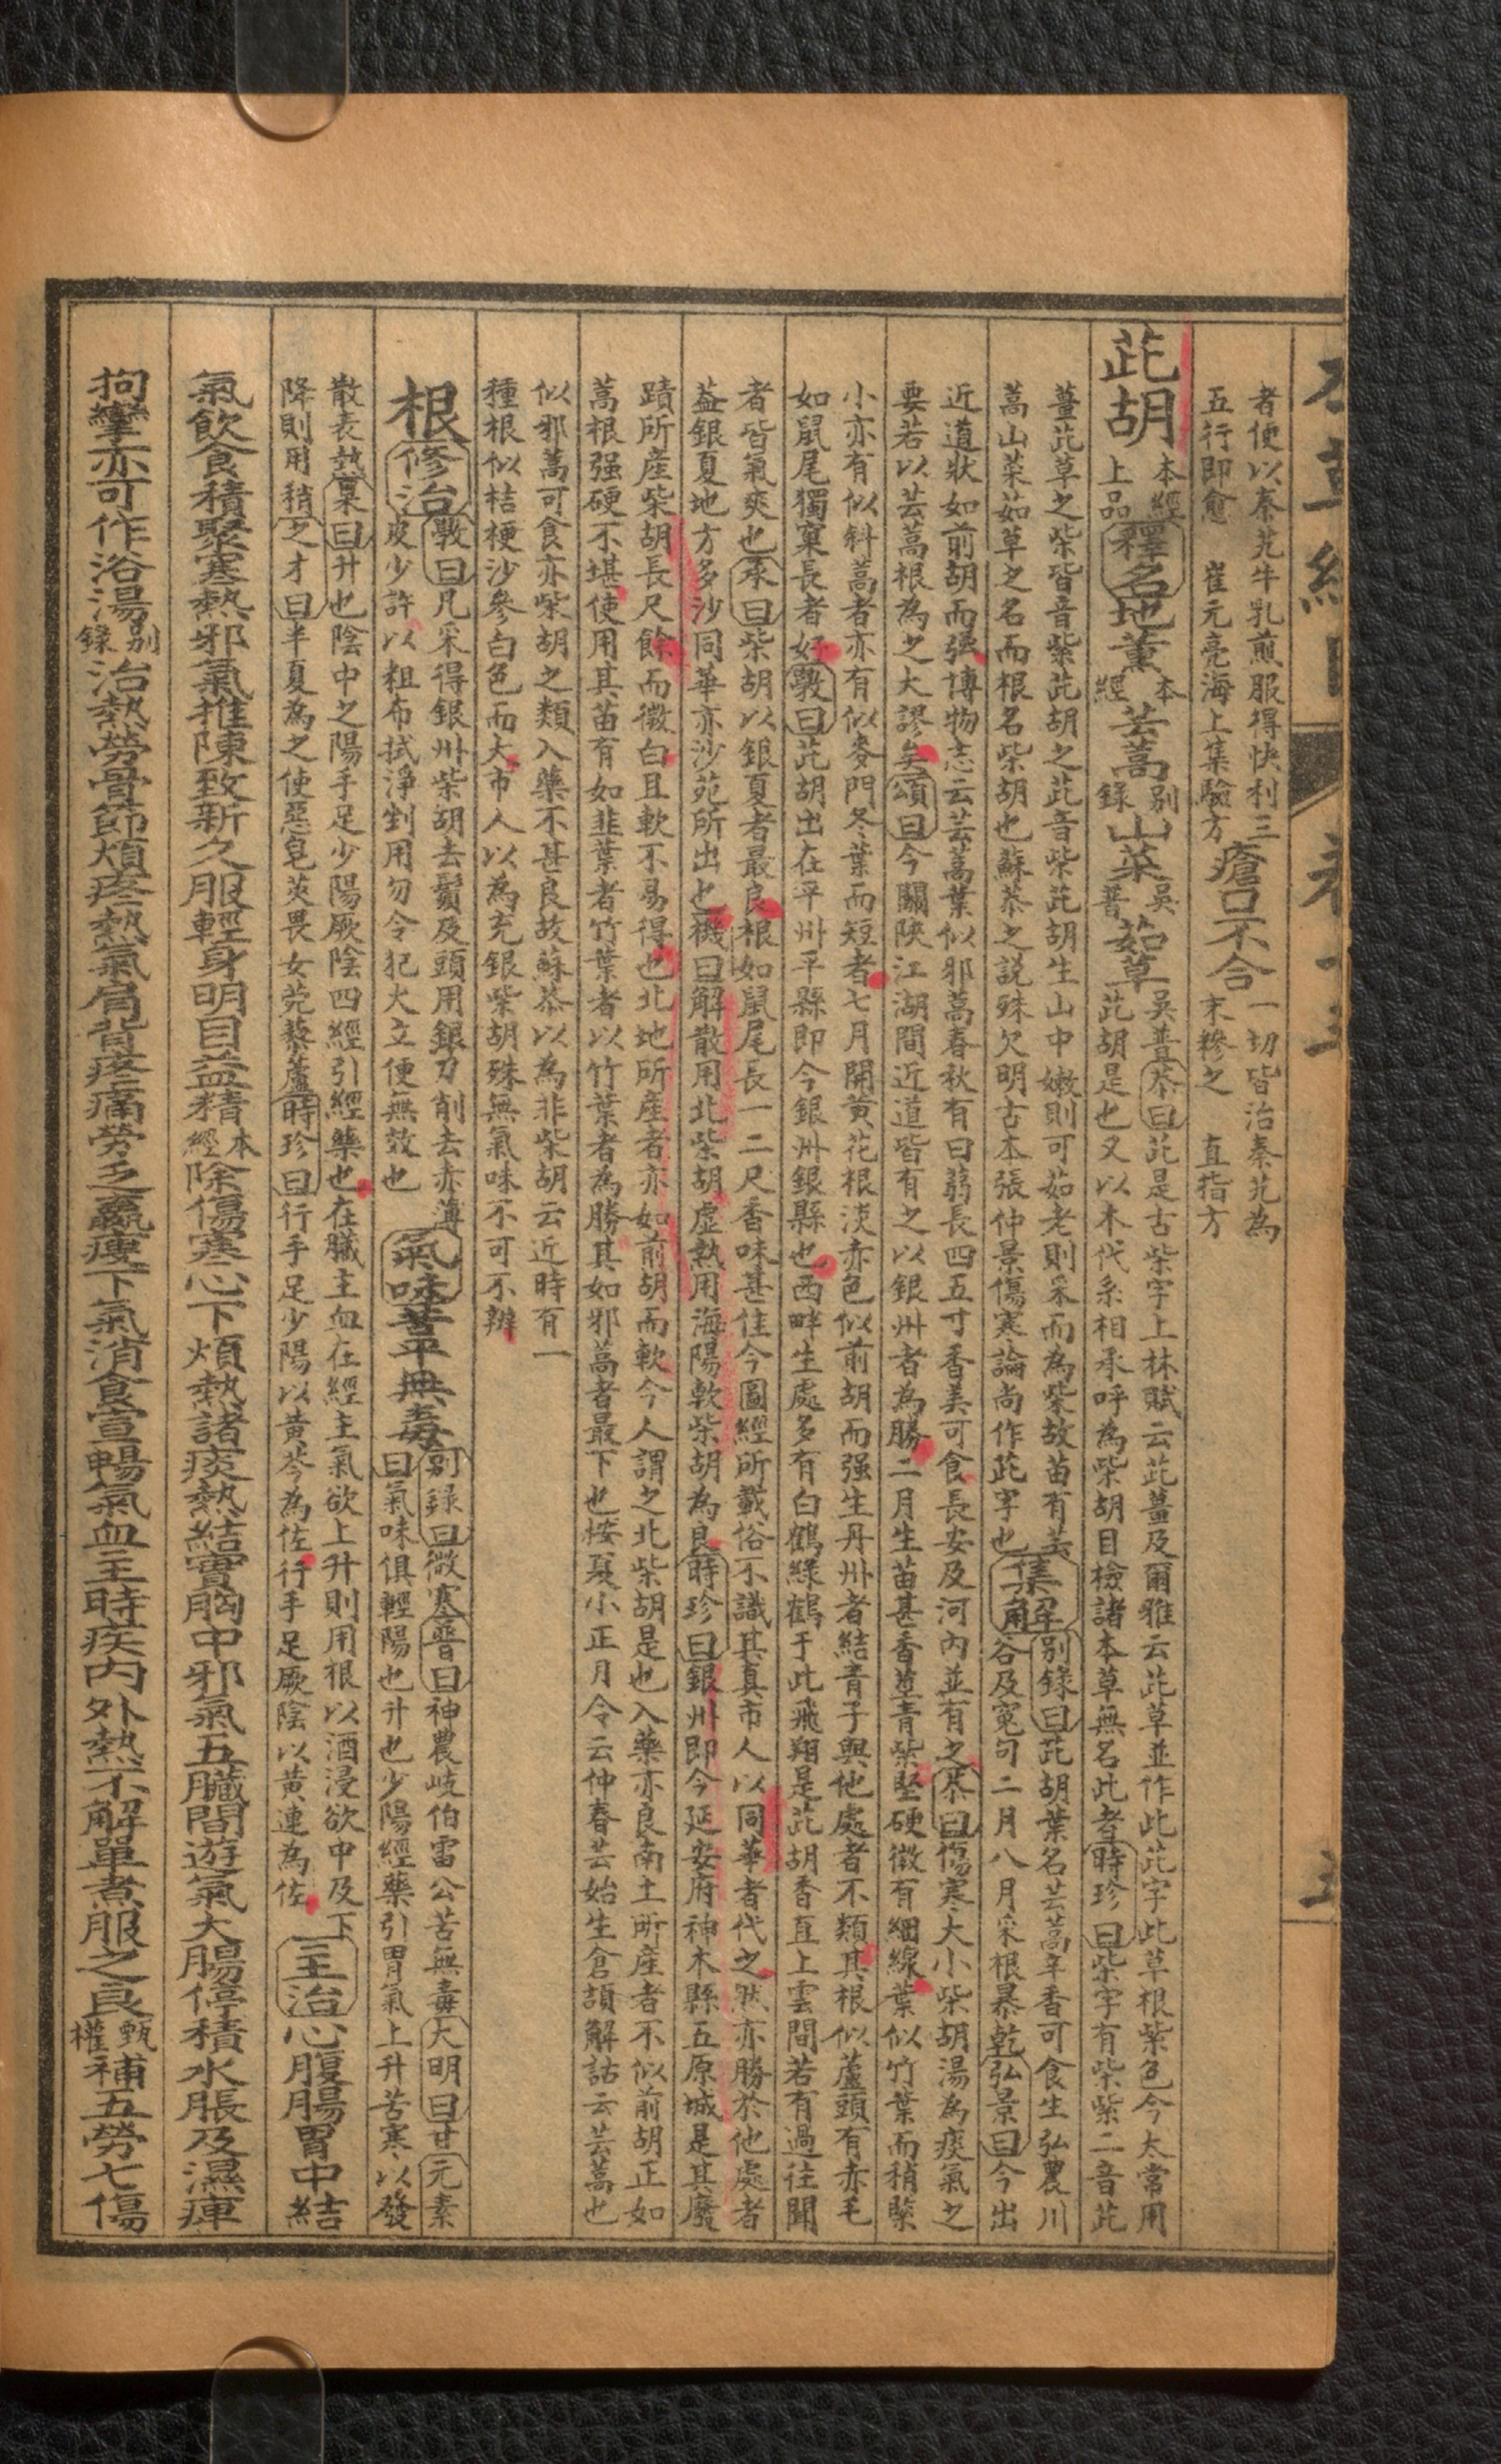 者便以秦艽牛乳煎服得快利三
五行即愈　崔元亮海上集驗方
瘡口不合
一切皆治秦艽為
末糝之　直指方
茈胡
本經
上品
釋名地薰
本
經
芸蒿
別
錄
山菜
吳
普
茹草
吳普恭曰茈是古柴字上林賦云茈薑及爾雅云茈草並作此茈字此草根紫色今太常用
茈胡是也又以木代系相承呼為柴胡目檢諸本草無名此者時珍曰柴字有柴紫二音茈
薑茈草之柴皆音紫茈胡之茈音柴茈胡生山中嫩則可茹老則采而為柴故苗有芸
蒿山菜茹草之名而根名柴胡也蘇恭之説殊欠明古本張仲景傷寒論尚作茈字也
集解
別錄曰茈胡葉名芸蒿辛香可食生弘農川
谷及寃句二月八月采根暴乾弘景曰今出
近道狀如前胡而强博物志云芸蒿葉似邪蒿春秋有白蒻長四五寸香美可食長安及河內並有之恭曰傷寒大小柴胡湯為痰氣之
要若以芸蒿根為之大謬矣頌曰今關陝江湖間近道皆有之以銀州者為勝二月生苗甚香莖青紫堅硬微有細線葉似竹葉而稍緊
小亦有似斜蒿者亦有似麥門冬葉而短者七月開黄花根淡赤色似前胡而强生丹州者結青子與他處者不類其根似蘆頭有赤毛
如鼠尾獨窠長者好斆曰茈胡出在平州平縣即今銀州銀縣也西畔生處多有白鶴綠鶴于此飛翔是茈胡香直上雲間若有過往聞
者皆氣爽也承曰柴胡以銀夏者最良根如鼠尾長一二尺香味甚佳今圖經所載俗不識其真市人以同華者代之然亦勝於他處者
葢銀夏地方多沙同華亦沙苑所出也機曰解散用北柴胡虛熱用海陽軟柴胡為良時珍曰銀州即今延安府神木縣五原城是其廢
蹟所産柴胡長尺餘而微白且軟不易得也北地所産者亦如前胡而軟今人謂之北柴胡是也入藥亦良南土所産者不似前胡正如
蒿根强硬不堪使用其苗有如韭葉者竹葉者以竹葉者為勝其如邪蒿者最下也桉夏小正月令云仲春芸始生倉頡解詁云芸蒿也
似邪蒿可食亦柴胡之類入藥不甚良故蘇恭以為非柴胡云近時有一
種根似桔梗沙參白色而大市人以為充銀柴胡殊無氣味不可不辨
根修治
斆曰凡采得銀州柴胡去鬚及頭用銀刀削去赤薄
皮少許以粗布拭淨剉用勿令犯火立便無效也
氣味苦平無毒
別錄曰微寒普曰神農岐伯雷公苦無毒大明曰甘元素
曰氣味俱輕陽也升也少陽經藥引胃氣上升苦寒以發
散表熱杲曰升也陰中之陽手足少陽厥陰四經引經藥也在臟主血在經主氣欲上升則用根以酒浸欲中及下
降則用稍之才曰半夏為之使惡皂莢畏女菀藜蘆時珍曰行手足少陽以黄芩為佐行手足厥陰以黄連為佐
主治心腹腸胃中結
氣飲食積聚寒熱邪氣推陳致新久服輕身明目益精
本
經
除傷寒心下煩熱諸痰熱結實胸中邪氣五臟間遊氣大腸停積水脹及濕痺
拘攣亦可作浴湯
別
錄
治熱勞骨節煩疼熱氣肩背疼痛勞乏羸瘦下氣消食宣暢氣血主時疾內外熱不解單煮服之良
甄
權
補五勞七傷